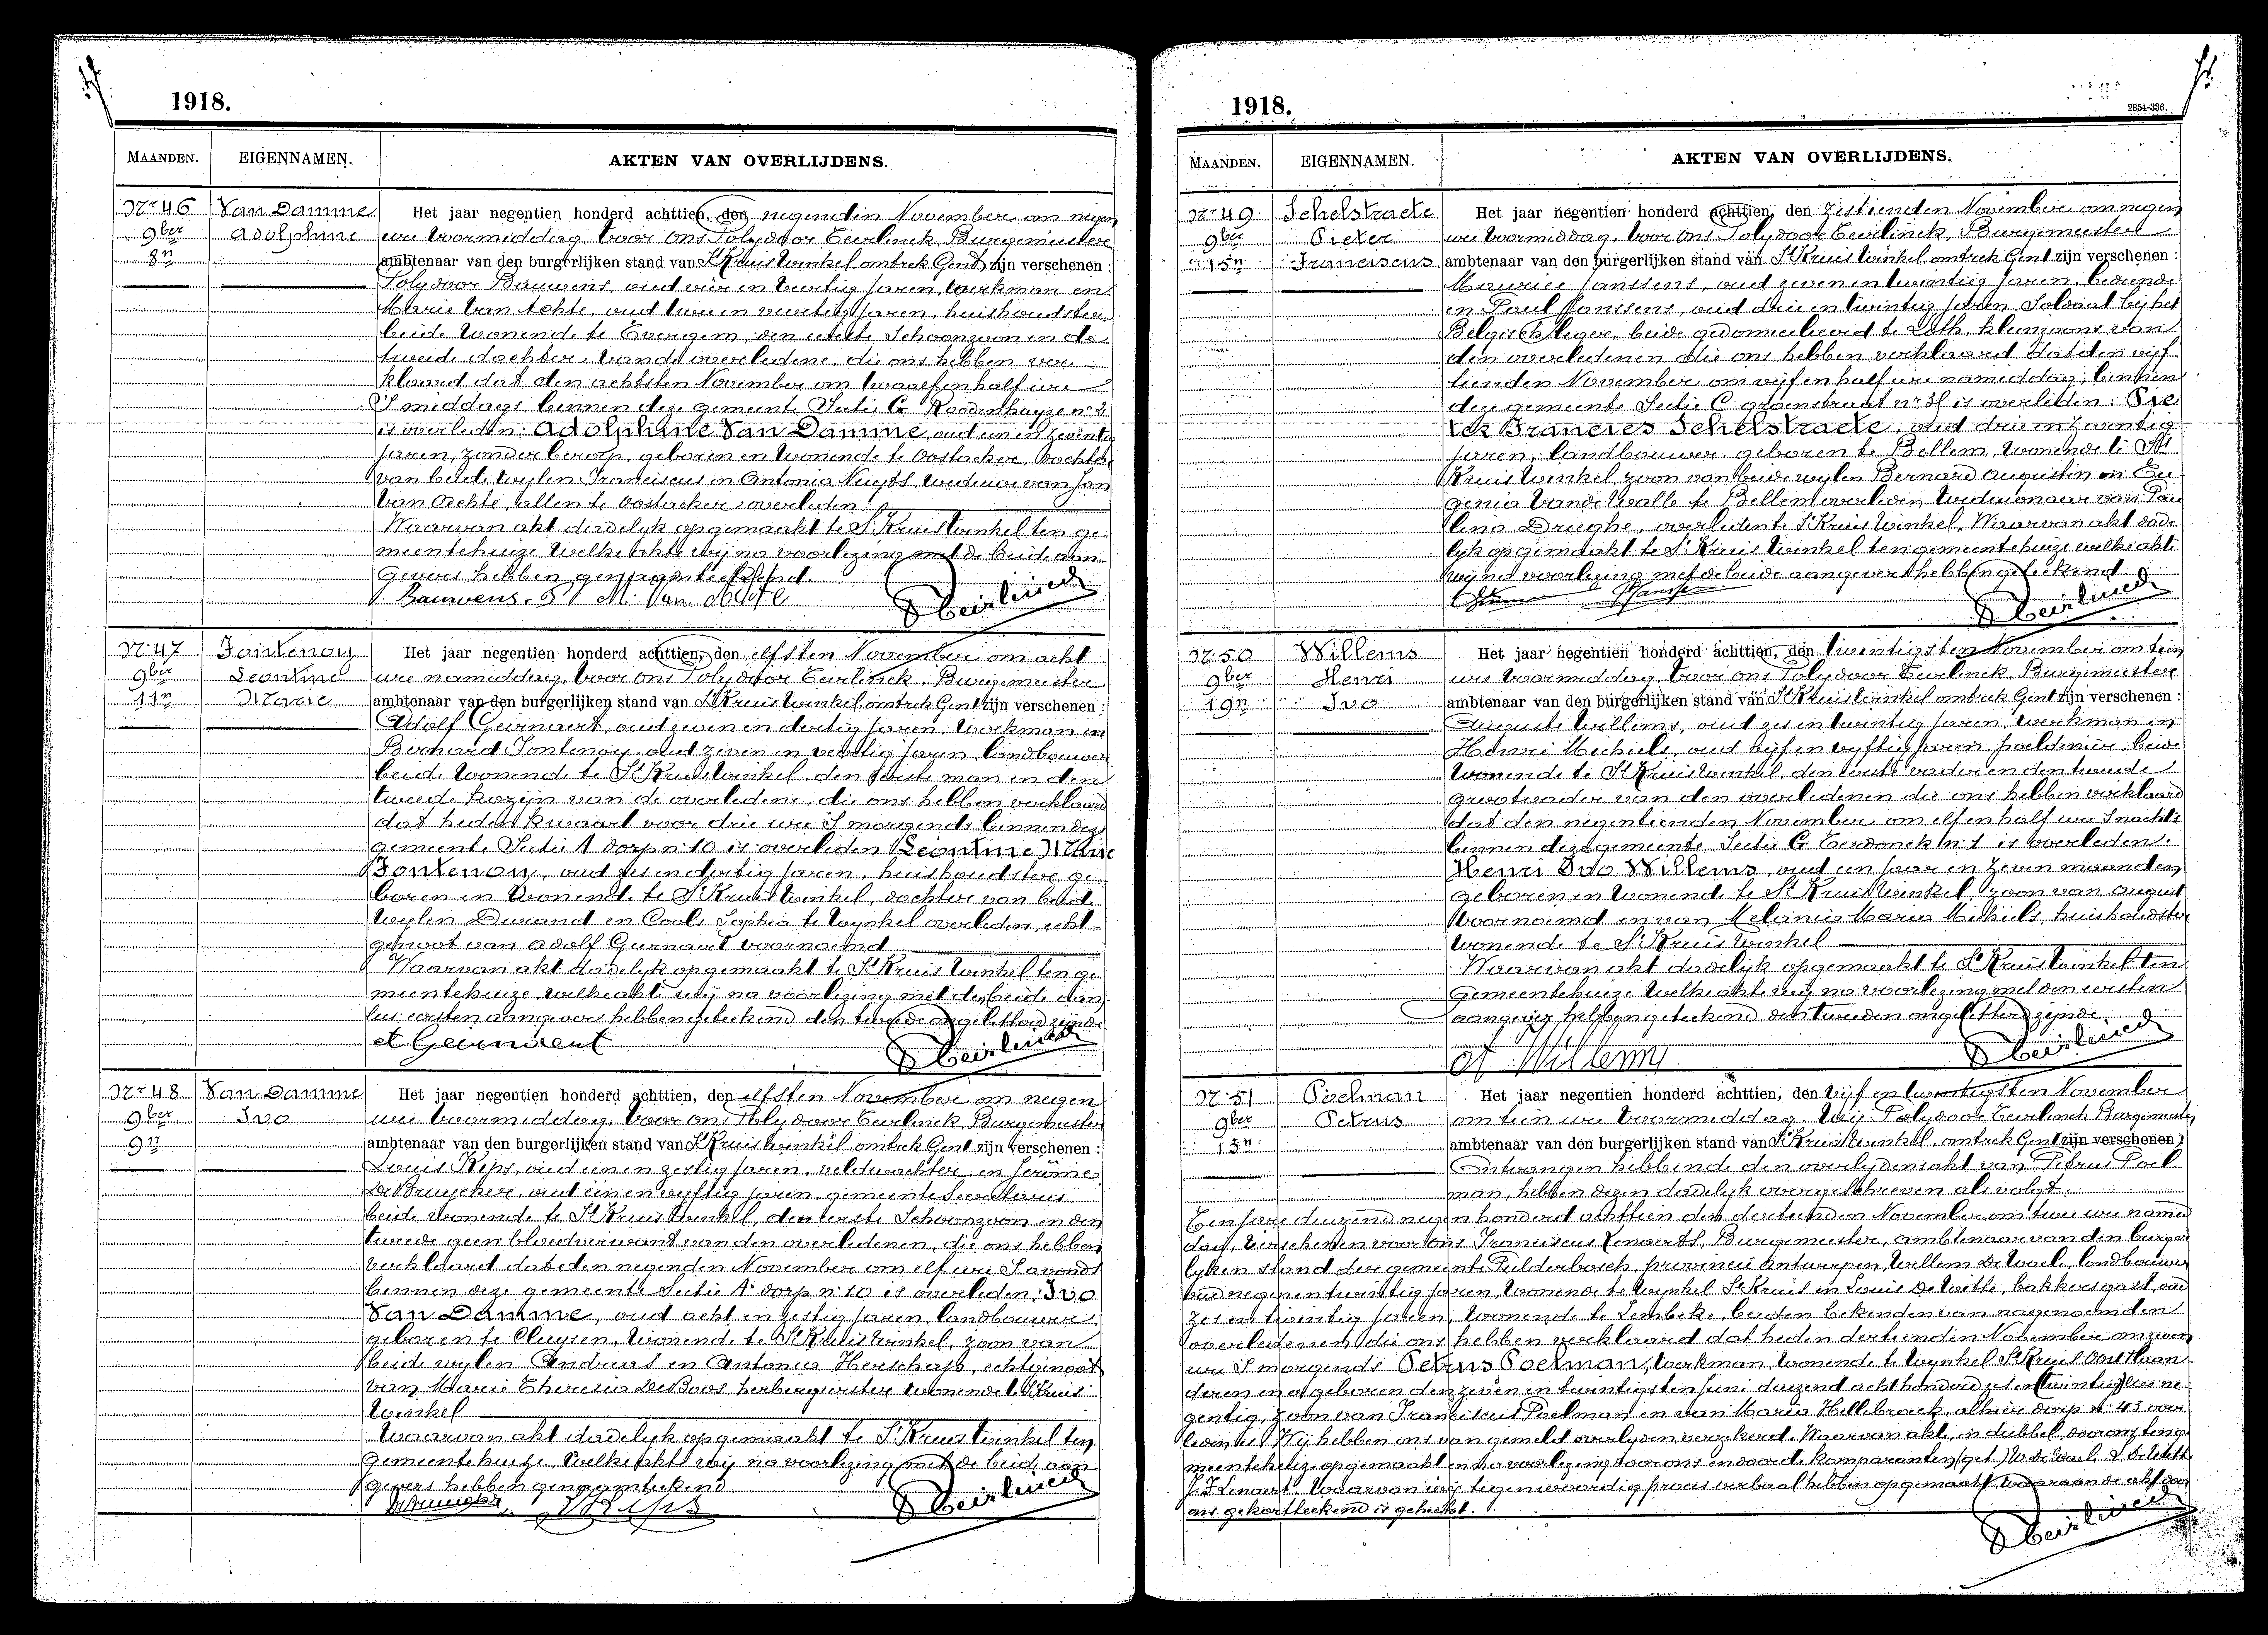 1918.
MAANDEN. EIGENNAMEN. AKTEN VAN OVERLIJDENS.
Nr 46 Van Damme Het jaar negentien honderd achttien, den negenden November om negen
9ber Adolphine ure voormiddag, voor ons Polydoor Eeurlinck, Burgemeester
8n ambtenaar van den burgerlijken stand van St Kruis Winkel omtrek Gent, zijn verschenen :
Polydoor Bauwens, oud en veertig jaren, werkman en
Marie Van Achte, oud twee en veertig jaren, huishoudster
beide wonende te Evergem, den eerste Schoonzoon en de
tweede dochter van de overledene, die ons hebben ver
klaard dat den achtsten November om twaalf en half ure
S middags binnen deze gemeente Sectie G Roodenhuyze nr 2
is overleden: Adolphine Van Damme, oud een en zeventig
jaren, zonder beroep, geboren en wonende te Oostacker, dochter
van beide wylen Franciscus en Antonia Nuyts, weduwe van Jan
Van Achte, allen te Oostacker overleden
Waarvan akt dadelyk opgemaakt te St Kruis Winkel ten ge
meentehuize welke akte wij na voorlezing met de beide aan
gevers hebben geteekend.
Bauwens. P M. Van Achte
Nr 47 Fontenoy Het jaar negentien honderd achttien, den elfsten November om acht
9ber Leontine ure namiddag, voor ons Polydoor Eeurlinck, Burgemeester
11n Marie ambtenaar van den burgerlijken stand van St Kruis Winkel, omtrek Gent zijn verschenen :
Adolf Geirnaert, oud zeven en dertig jaren, werkman en
Bernard Fontenoy, oud zeven en veertig jaren, landbouwer
beide wonende te St Kruis Winkel, den eerste man en den
tweede kozijn van de overledene, die ons hebben verklaard
dat heden kwaart voor drie ure S morgends binnen deze
gemeente Sectie A dorp nr 10 is overleden Leontine Marie
Fontenoy, oud zes en dertig jaren, huishoudster, ge
boren en wonende te St Kruis Winkel, dochter van beide
wylen Durand en Cools Sophia te Wynkel overleden, echt
genoot van Adolf Geirnaert voornoemd
Waarvan akt dadelyk opgemaakt te St Kruis Winkel ten ge
meentehuize, welke akte wij na voorlezing met de beide aan
eersten aangever hebben geteekend den tweede ongeletterd zijnde
A Geirnaert
Nr 48 Van Damme Het jaar negentien honderd achttien, den elfsten November om negen
9ber Ivo ure voormiddag, voor ons Polydoor Eeurlinck Burgemeester
9n ambtenaar van den burgerlijken stand van St Kruis Winkel omtrek Gent zijn verschenen :
Louis Kips, oud een en zestig jaren, veldwachter en Jerôme
De Bruycker, oud een en vyftig jaren, gemeente Secretaris
beide wonende te St Kruis Winkel, den eerste Schoonzoon en den
tweede geen bloedverwant van den overledenen, die ons hebben
verklaard dat den negenden November om elf ure S avonds
binnen deze gemeente Sectie A dorp nr 10 is overleden: Ivo
Van Damme, oud acht en zestig jaren, landbouwer
geboren te Cluysen, wonende te St Kruis Winkel, zoon van
beide wylen Andreas en Antonia Herschap, echtgenoot
van Marie Theresia De Boos herbergierster wonende te St Kruis
Winkel
Waarvan akt dadelyk opgemaakt te St Kruis Winkel ten
gemeentehuize, welke akte wij na voorlezing met de beide aan
gevers hebben geteekend
1918.
2854-336.
MAANDEN. EIGENNAMEN. AKTEN VAN OVERLIJDENS.
Nr 49 Schelstraete Het jaar negentien honderd achttien, den zestienden November om negen
9ber Pieter ure voormiddag, voor ons Polydoor Eeurlinck, Burgemeester
15n Franciscus ambtenaar van den burgerlijken stand van St Kruis Winkel omtrek Gent zijn verschenen :
Maurice Janssens, oud zeven en twintig jaren, bediende
en Paul Janssens, oud drie en twintig jaren, Soldaat bij het
Belgisch leger, beide gedomicilieerd te Loth, kleinzoons van
den overledenen die ons hebben verklaard dat den vijf
tienden November om vijf en half ure namiddag, binnen
deze gemeente Sectie C groenstraat nr 31 is overleden: Pie
ter Francies Schelstraete, oud drie en zeventig
jaren, landbouwer, geboren te Bellem, wonende te St
Kruis Winkel, zoon van beide wylen Bernard Augustin en Eu
genia Van de Walle te Bellem overleden, weduwnaar van Pau
lina Drieghe, overleden te St Kruis Winkel. Waarvan akt dade
lyk opgemaakt te St Kruis Winkel ten gemeentehuize welke akte
wij na voorlezing met de beide aangevers hebben geteekend
Nr 50 Willems Het jaar negentien honderd achttien, den twintigsten November om tien
9ber Henri ure voormiddag voor ons Polydoor Eeurlinck, Burgemeester
19n Ivo ambtenaar van den burgerlijken stand van St Kruis Winkel omtrek Gent zijn verschenen :
Auguste Willems, oud zes en twintig jaren, werkman en
Henri Michiels, oud vijf en vyftig jaren, beide
wonende te St Kruis Winkel, den eerste vader en den tweede
grootvader van den overledenen die ons hebben verklaard
dat den negentienden November om elf en half ure S nachts
binnen deze gemeente Sectie G Eerdonck nr 1 is overleden:
Henri Ivo Willems, oud een jaar en zeven maanden
geboren en wonende te St Kruis Winkel, zoon van August
voornoemd en van Melanie Maria Michiels, huishoudster
wonende te St Kruis Winkel
Waarvan akt dadelyk opgemaakt te St Kruis Winkel ten
gemeentehuize welke akte wij na voorlezing met den eersten
aangever hebben geteekend den tweeden ongeletterd zijnde.
A Willems
Nr 51 Poelman Het jaar negentien honderd achttien, den vijf en twintigsten November
9ber Petrus om tien ure voormiddag. Wij Polydoor Eeurlinck Burgemeester
13n ambtenaar van den burgerlijken stand van St Kruis Winkel, omtrek Gent zijn verschenen :
Ontvangen hebbende den overlydensakt van Petrus Poel
man, hebben dezen dadelyk overgeschreven als volgt:
Een jare duizend negen honderd achttien den dertienden November om twee ure namid
dag, verschenen voor ons Franciscus Lenaerts, Burgemeester, ambtenaar van den burger
lyken stand der gemeente Pulderbosch, provincie Antwerpen, Willem De Wael, landbouwer
oud negen en twintig jaren, wonende te Wynkel St Kruis en Louis De Witte, bakkersgast, oud
zes en twintig jaren, wonende te Lembeke, beiden bekenden van nagenoemden
overledenen, die ons hebben verklaard dat heden dertienden November om zeven
ure S morgends Petrus Poelman, werkman, wonende te Wynkel St Kruis Oost Vlaan
deren en er geboren den zeven en twintigsten Juni duizend acht honderd zes en twintig zes ne
gentig, zoon van Franciscus Poelman en van Maria Hellebroeck, alhier dorp nr 43 over
leden is. Wij hebben ons van gemeld overlyden verzekerd. Waarvan akt, in dubbel, door ons ten ge
meentehuize opgemaakt en na voorlezing door ons en door de komparanten (get.) W. De Wael. L. De Witte
J. F. Lenaerts. Waarvan wij tegenwoordig proces verbaal hebben opgemaakt waaraan de akt door
ons gekortteekend is gehecht.